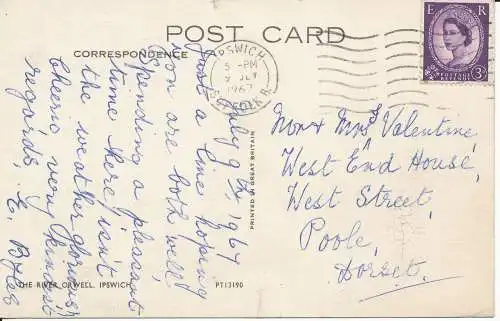 POST CARD
CORRESPONDENCE
July 9th 1967
Just a line hoping
you are both well
Spending a pleasant
time here isn't
the weather glorious,
Cheerio very kindest
regards, E.
IPSWICH
5 - PM
JLY
1967
SUFFOLK
E R
POSTAGE
REVENUE
3D
PRINTED IN GREAT BRITAIN
Mr & Mrs Valentine,
West End House,
West Street,
Poole,
Dorset.
THE RIVER ORWELL, IPSWICH
PT13190